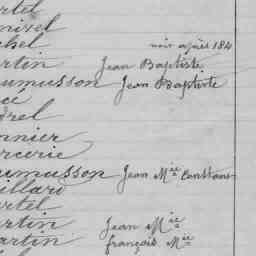 rtel
chel noir après 184
rtin Jean Baptiste
umusson Jean Baptiste
cé
rel
nnier
rcerie
umusson Jean Mie Constant
illard
rtel
artin Jean Mie
artin français Mie